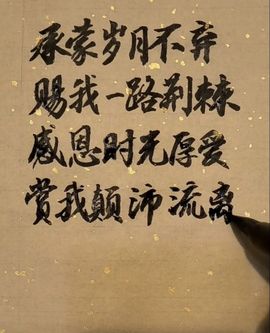 承蒙岁月不弃
赐我一路荆棘
感恩时光厚爱
赏我颠沛流离